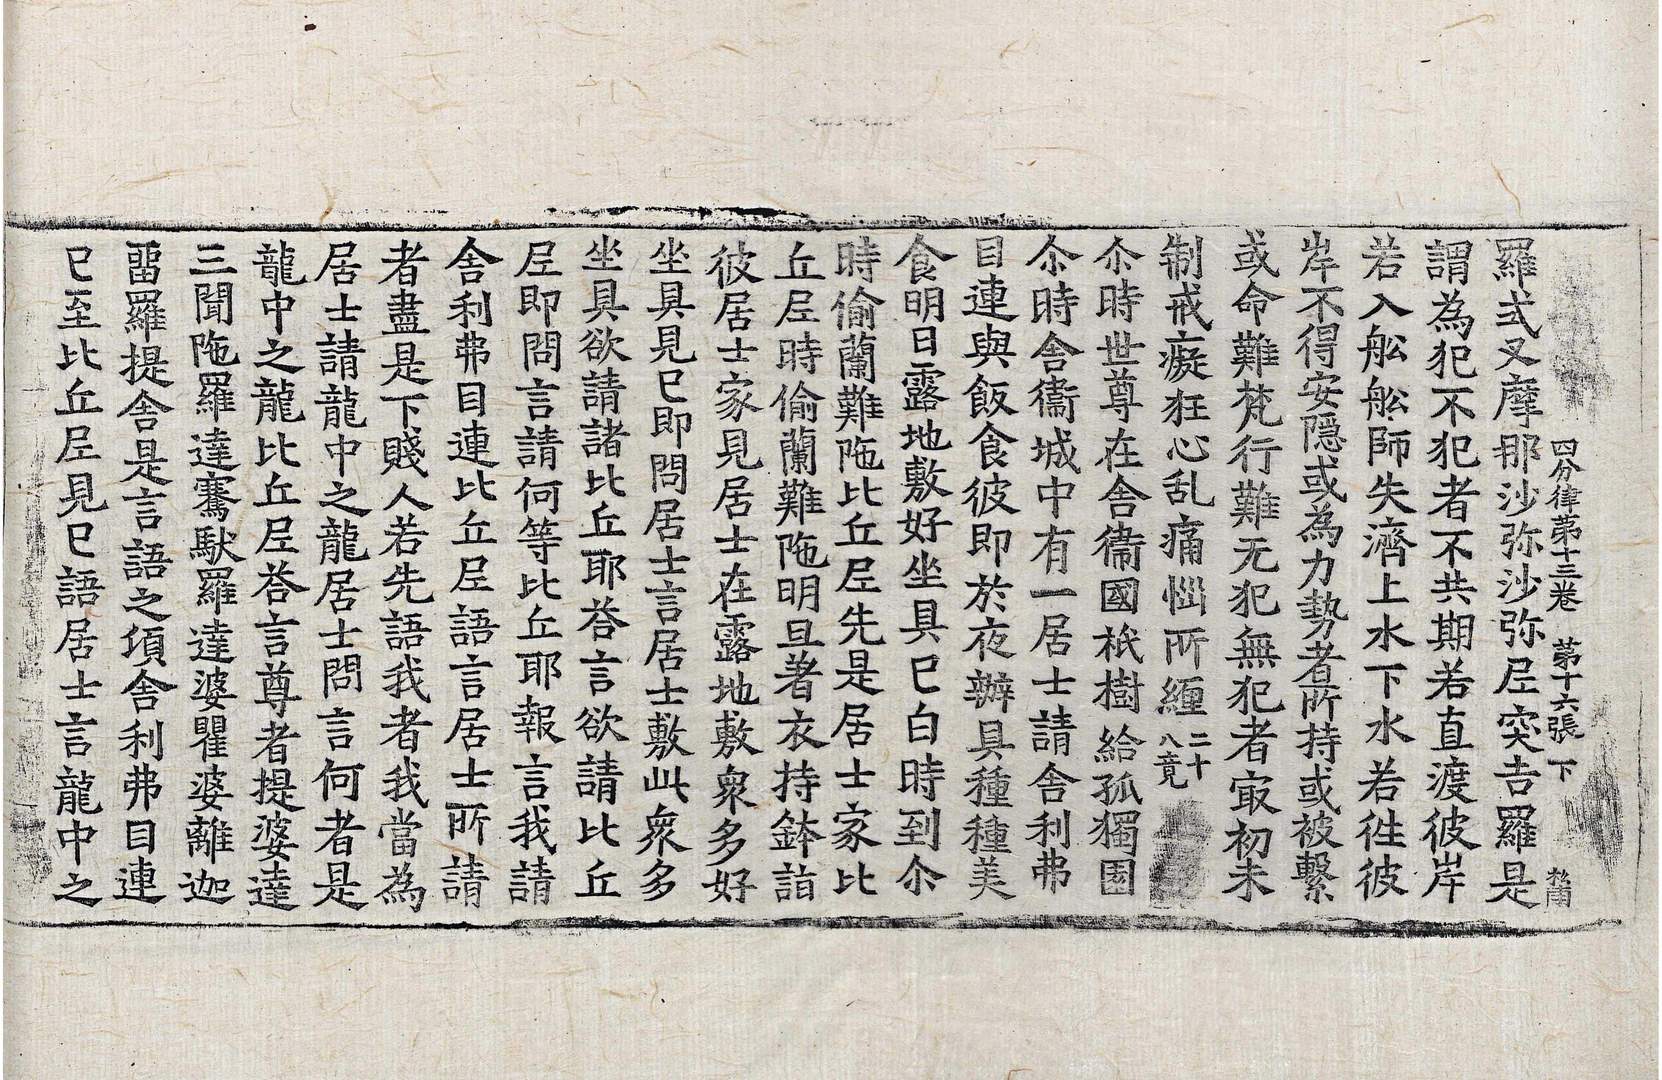 四分律第十三卷 第十六張 下
羅式叉摩那沙弥沙弥尼突吉羅是
謂為犯不犯者不共期若直渡彼岸
若入舩舩師失濟上水下水若徃彼
岸不得安隱或為力勢者所持或被繫
或命難梵行難无犯無犯者㝡初未
制戒癡狂心乱痛惱所纏二十八竟
尒時世尊在舍衞國祇樹給孤獨園
尒時舍衞城中有一居士請舍利弗
目連與飯食彼即於夜辦具種種美
食明日露地敷好坐具已白時到尒
時偷蘭難陁比丘尼先是居士家比
丘尼時偷蘭難陁明旦著衣持鉢詣
彼居士家見居士在露地敷衆多好
坐具見已即問居士言居士敷此衆多
坐具欲請諸比丘耶荅言欲請比丘
尼即問言請何等比丘耶報言我請
舍利弗目連比丘尼語言居士所請
者盡是下賤人若先語我者我當為
居士請龍中之龍居士問言何者是
龍中之龍比丘尼荅言尊者提婆達
三聞陁羅達騫馱羅達婆瞿婆離迦
留羅提舍是言語之項舍利弗目連
已至比丘尼見已語居士言龍中之